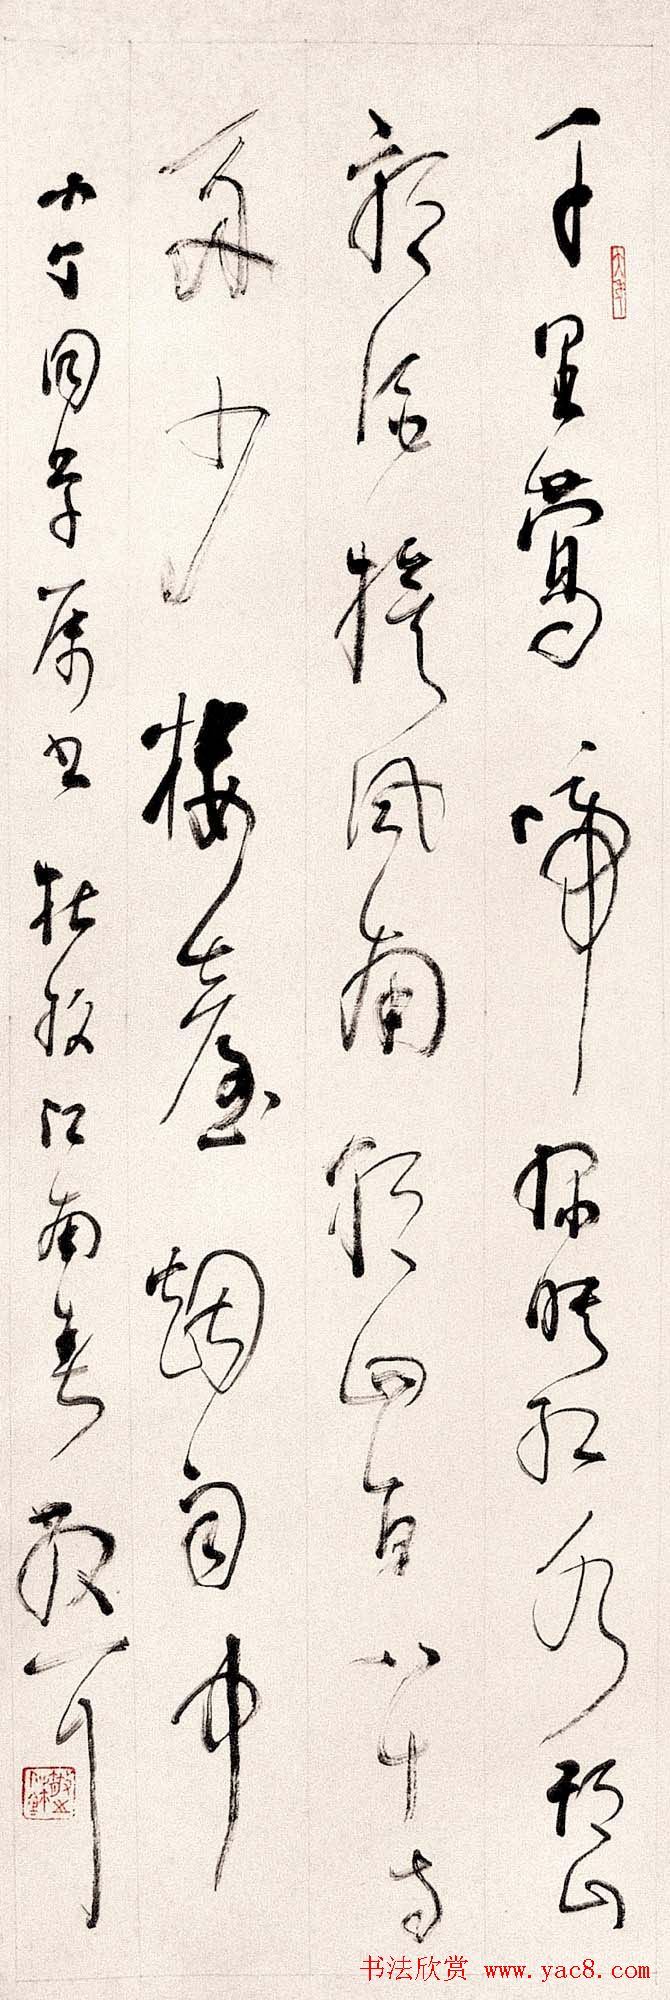 千里鶯啼綠映紅水邨山
郭酒旗風南朝四百八十寺
多少樓臺烟雨中
同学属书杜牧江南春散耳
书法欣赏 www.yac8.com